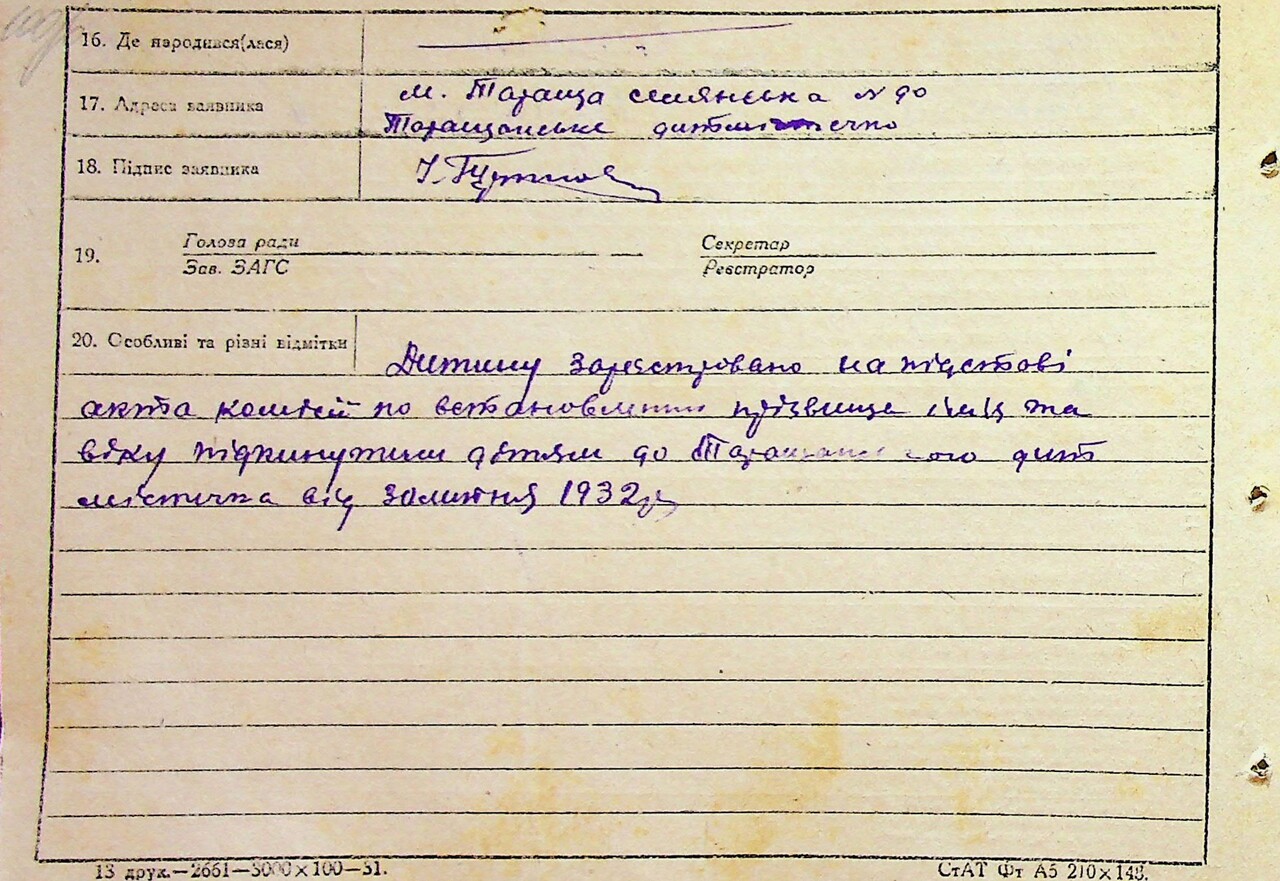 16. Де народився(лася)
17. Адреса заявника
м. Тараща селянська № 90
Таращанське дитмістечко
18. Підпис заявника
19.
Голова ради
Зав. ЗАГС
Секретар
Реєстратор
20. Особливі та різні відмітки
Дитину зареєстровано на підставі
акта комісії по встановленню прізвища імя та
віку підкинутим дітям до Таращанського дит
містечка від 30 лютня 1932 р
13 друк.—2661—5000×100—31.
СтАТ Фт А5 210×148.